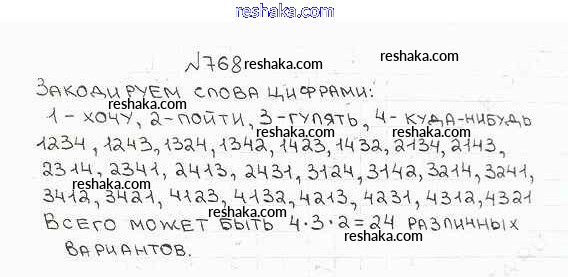 reshaka.ru
№768 reshaka.ru
Закодируем слова цифрами: reshaka.ru
1 - хочу, 2 - пойти, 3 - гулять, 4 - куда-нибудь
reshaka.ru
1234, 1243, 1324, 1342, 1423, 1432, 2134, 2143,
reshaka.ru
2314, 2341, 2413, 2431, 3124, 3142, 3214, 3241,
reshaka.ru reshaka.ru
3412, 3421, 4123, 4132, 4213, 4231, 4312, 4321
reshaka.ru
Всего может быть 4·3·2=24 различных
reshaka.ru
вариантов.